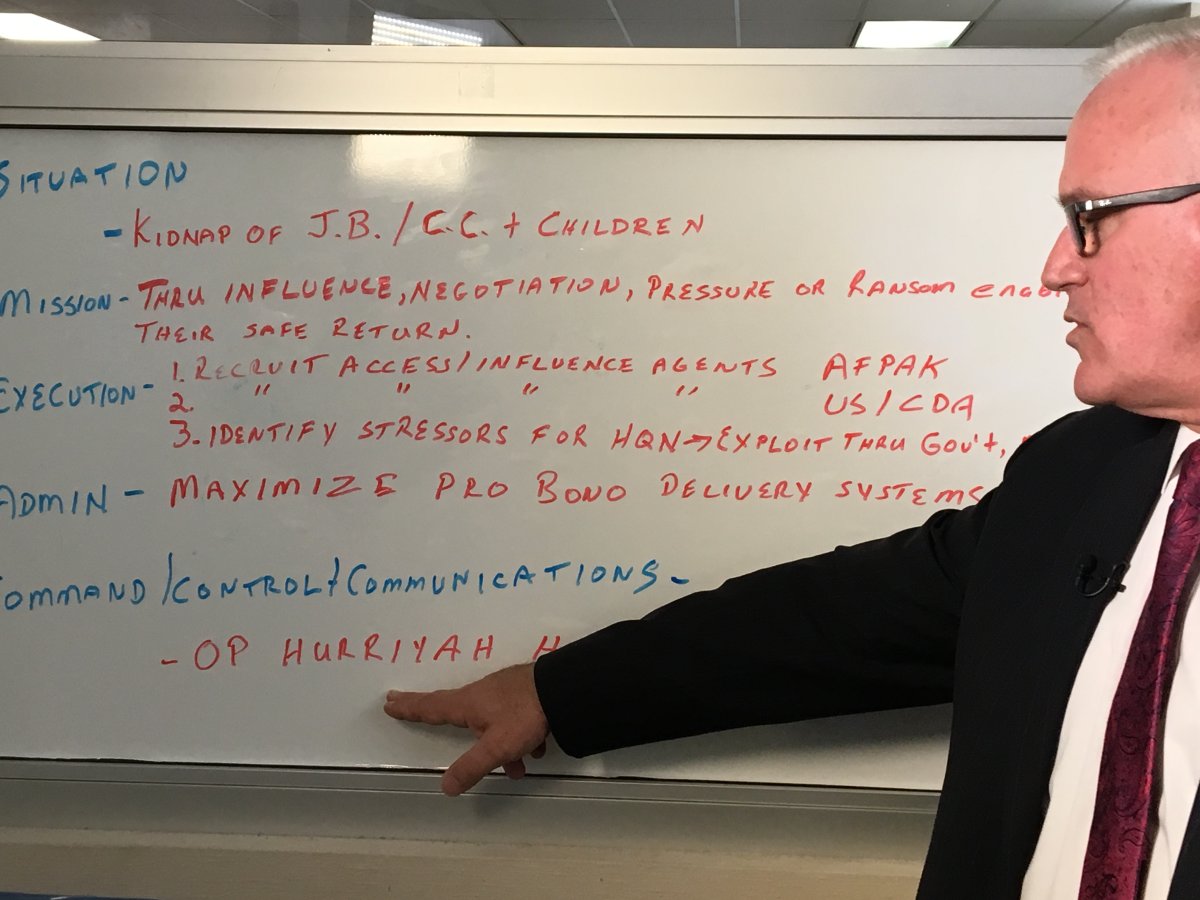 SITUATION
- KIDNAP OF J.B. / C.C. + CHILDREN
MISSION - THRU INFLUENCE, NEGOTIATION, PRESSURE OR RANSOM
THEIR SAFE RETURN.
EXECUTION - 1. RECRUIT ACCESS/INFLUENCE AGENTS AFPAK
2. " " " " US/CDA
3. IDENTIFY STRESSORS FOR HQN → EXPLOIT THRU GOV'T,
ADMIN - MAXIMIZE PRO BONO DELIVERY SYSTEMS
COMMAND/CONTROL + COMMUNICATIONS -
- OP HURRIYAH